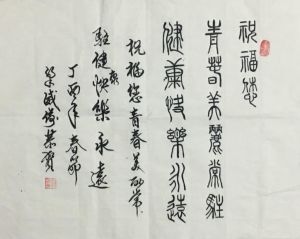 祝福您
青春美麗常駐
健康快樂永遠
祝福您青春美丽常
駐健康快樂永遠
丁酉年春节
恭賀